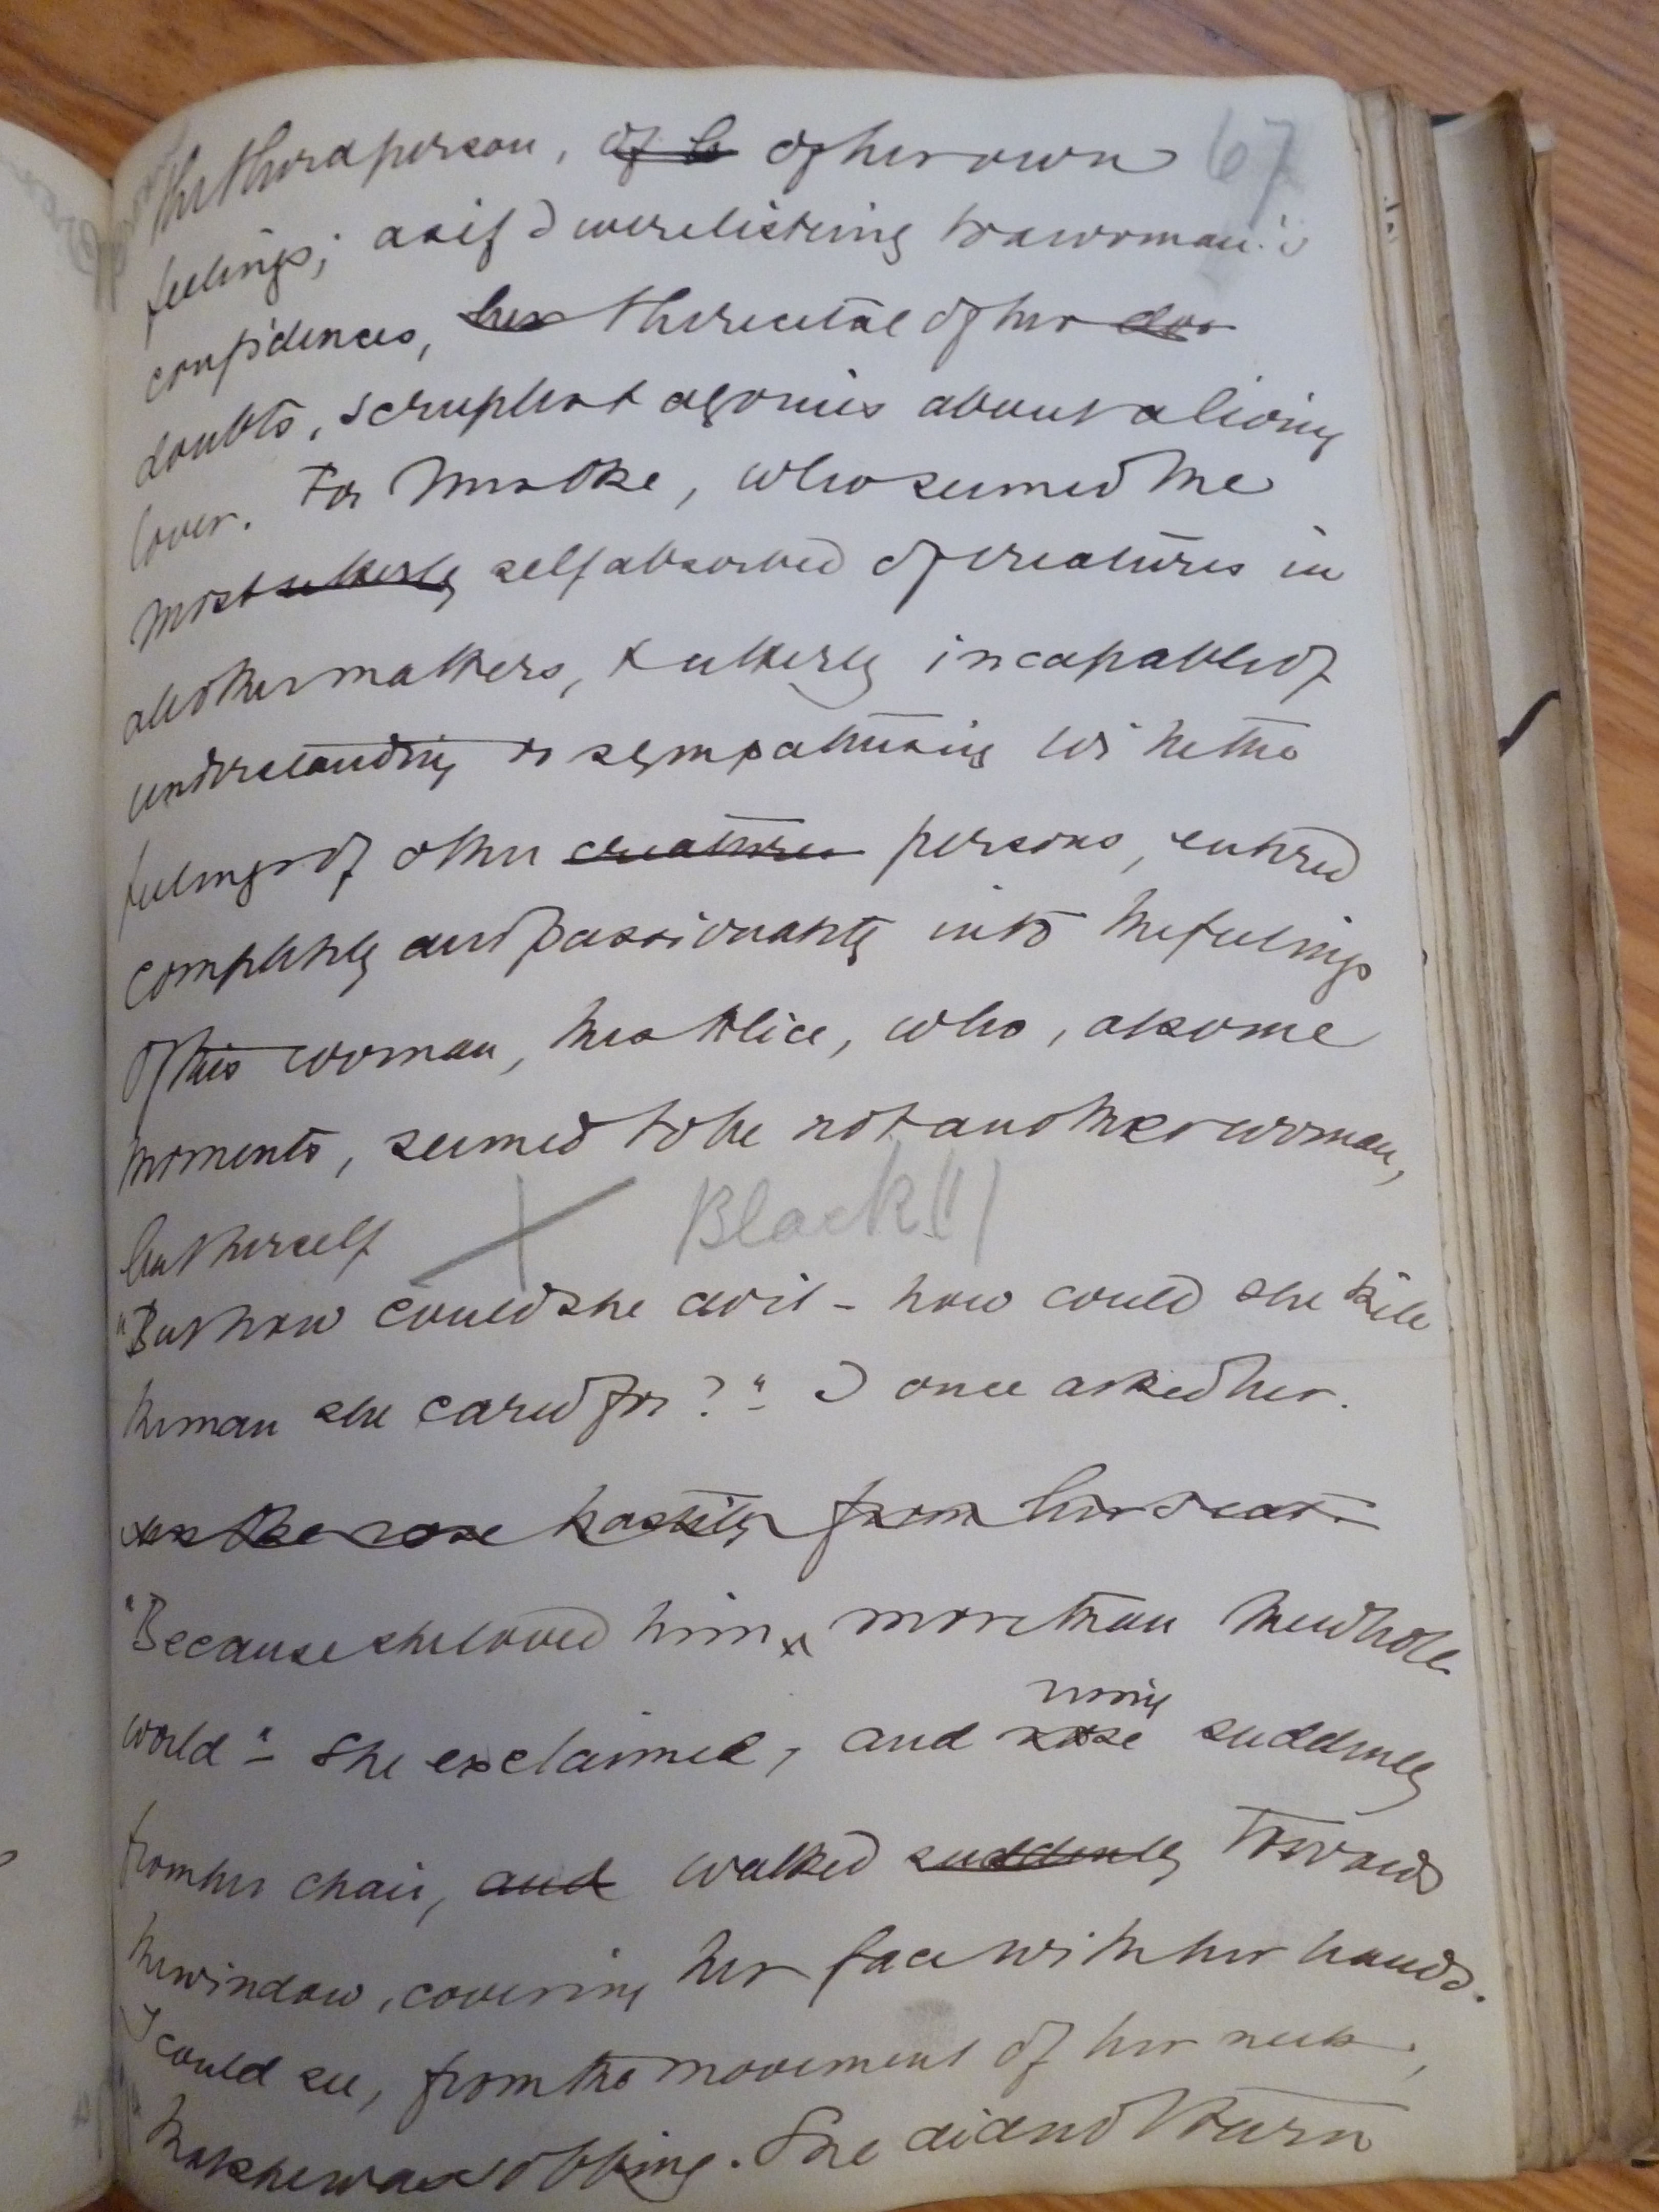 the third person, of h of her own 67
feelings; as if I were listening to a woman's
confidences, her the recital of her dou
doubts, scruples & agonies about a living
lover. For Mrs Oke, who seemed the
most utterly self absorbed of creatures in
all other matters, & utterly incapable of
understanding or sympathising with the
feelings of other creatures persons, entered
completely and passionately into the feelings
of this woman, this Alice, who, at some
moments, seemed to be not another woman,
but herself
Black !!)
"But how could she do it – how could she kill
the man she cared for?" I once asked her.
Mrs Oke rose hastily from her seat.
"Because she loved him more than the whole
rising
world" – She exclaimed, and rose suddenly
from her chair, and walked suddenly towards
the window, covering her face with her hands.
I could see, from the movement of her neck,
that she was sobbing. She did not turn